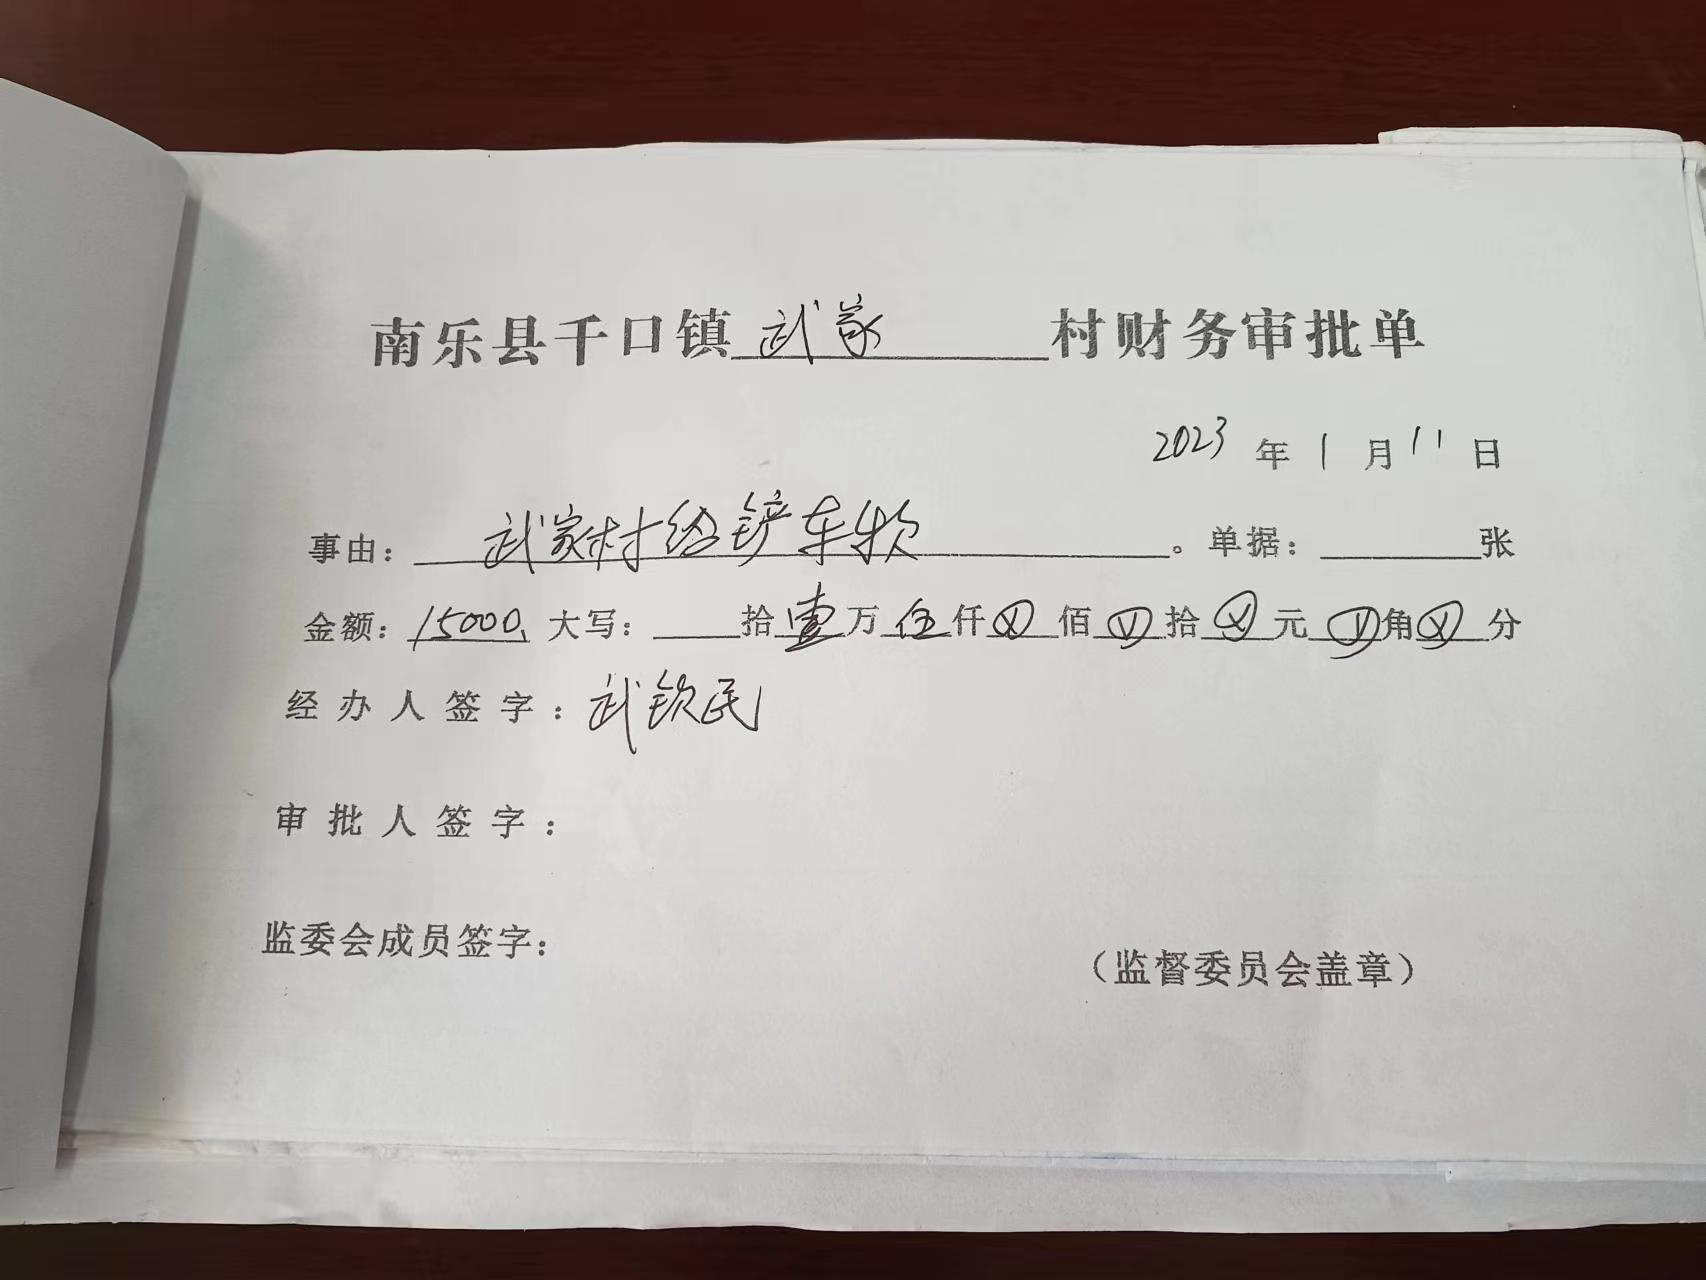 南乐县千口镇武家村财务审批单
2023年1月11日
事由：武家村给铲车款。单据：张
金额：15000 大写：拾壹万伍仟⊗佰⊗拾⊗元⊗角⊗分
经办人签字：武钦民
审批人签字：
监委会成员签字：
（监督委员会盖章）